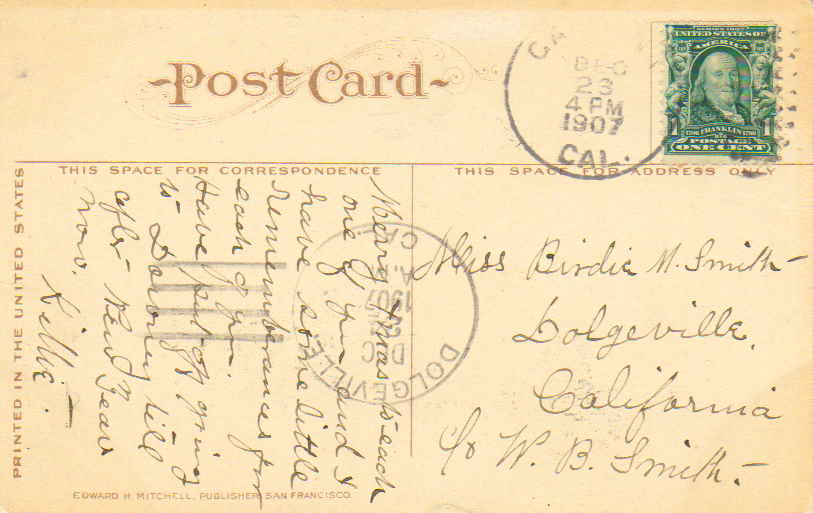 Post Card
SERIES 1902
UNITED STATES OF
AMERICA
1706 FRANKLIN 1790
1 1
POSTAGE
ONE CENT
DEC
23
4 PM
1907
CAL.
THIS SPACE FOR CORRESPONDENCE
THIS SPACE FOR ADDRESS ONLY
PRINTED IN THE UNITED STATES
Merry Xmas to each
one of you and I
have some little
rememberances for
each of you.
Have put off going
to till
after New Year
now.
Lillie.
DOLGEVILLE
DEC
1907
A.M.
CAL
Miss Birdie M. Smith
Dolgeville
California
c/o W. B. Smith.
EDWARD H. MITCHELL, PUBLISHER, SAN FRANCISCO.